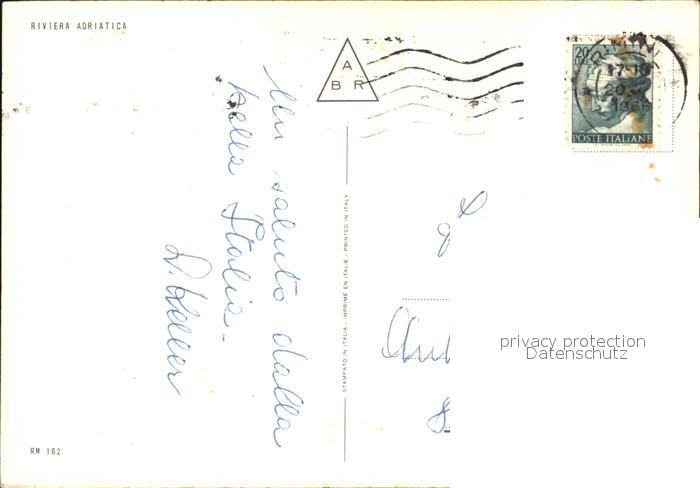 RIVIERA ADRIATICA
A
B R
20
LIRE
17-18
20
1966
POSTE ITALIANE
Un saluto dalla
bella Italia -
STAMPATO IN ITALIA - IMPRIMÉ EN ITALIE - PRINTED IN ITALY
privacy protection
Datenschutz
RM 162